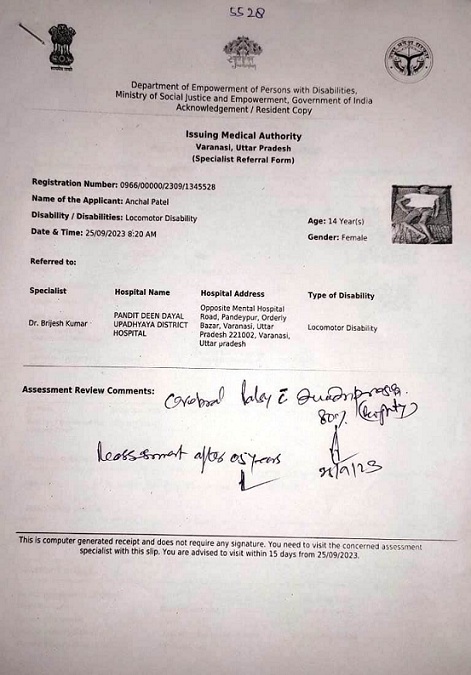 5528
Department of Empowerment of Persons with Disabilities,
Ministry of Social Justice and Empowerment, Government of India
Acknowledgement / Resident Copy
Issuing Medical Authority
Varanasi, Uttar Pradesh
(Specialist Referral Form)
Registration Number: 0966/00000/2309/1345528
Name of the Applicant: Anchal Patel
Disability / Disabilities: Locomotor Disability
Age: 14 Year(s)
Date & Time: 25/09/2023 8:20 AM
Gender: Female
Referred to:
Specialist Hospital Name Hospital Address Type of Disability
Dr. Brijesh Kumar
PANDIT DEEN DAYAL
UPADHYAYA DISTRICT
HOSPITAL
Opposite Mental Hospital
Road, Pandeypur, Orderly
Bazar, Varanasi, Uttar
Pradesh 221002, Varanasi,
Uttar pradesh
Locomotor Disability
Assessment Review Comments:
Cerebral Palsy c̄
80% (Eighty)
Reassessment after 05 years
This is computer generated receipt and does not require any signature. You need to visit the concerned assessment
specialist with this slip. You are advised to visit within 15 days from 25/09/2023.